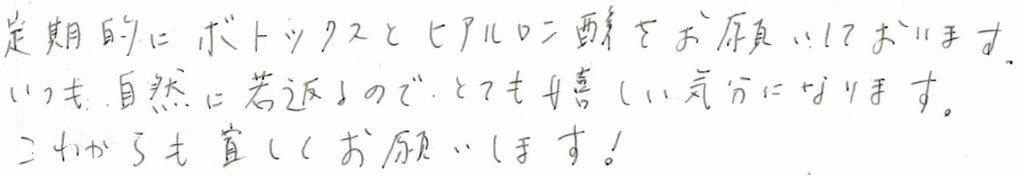 定期的にボトックスとヒアルロン酸をお願いしております。
いつも自然に若返るので、とても嬉しい気分になります。
これからも宜しくお願いします!